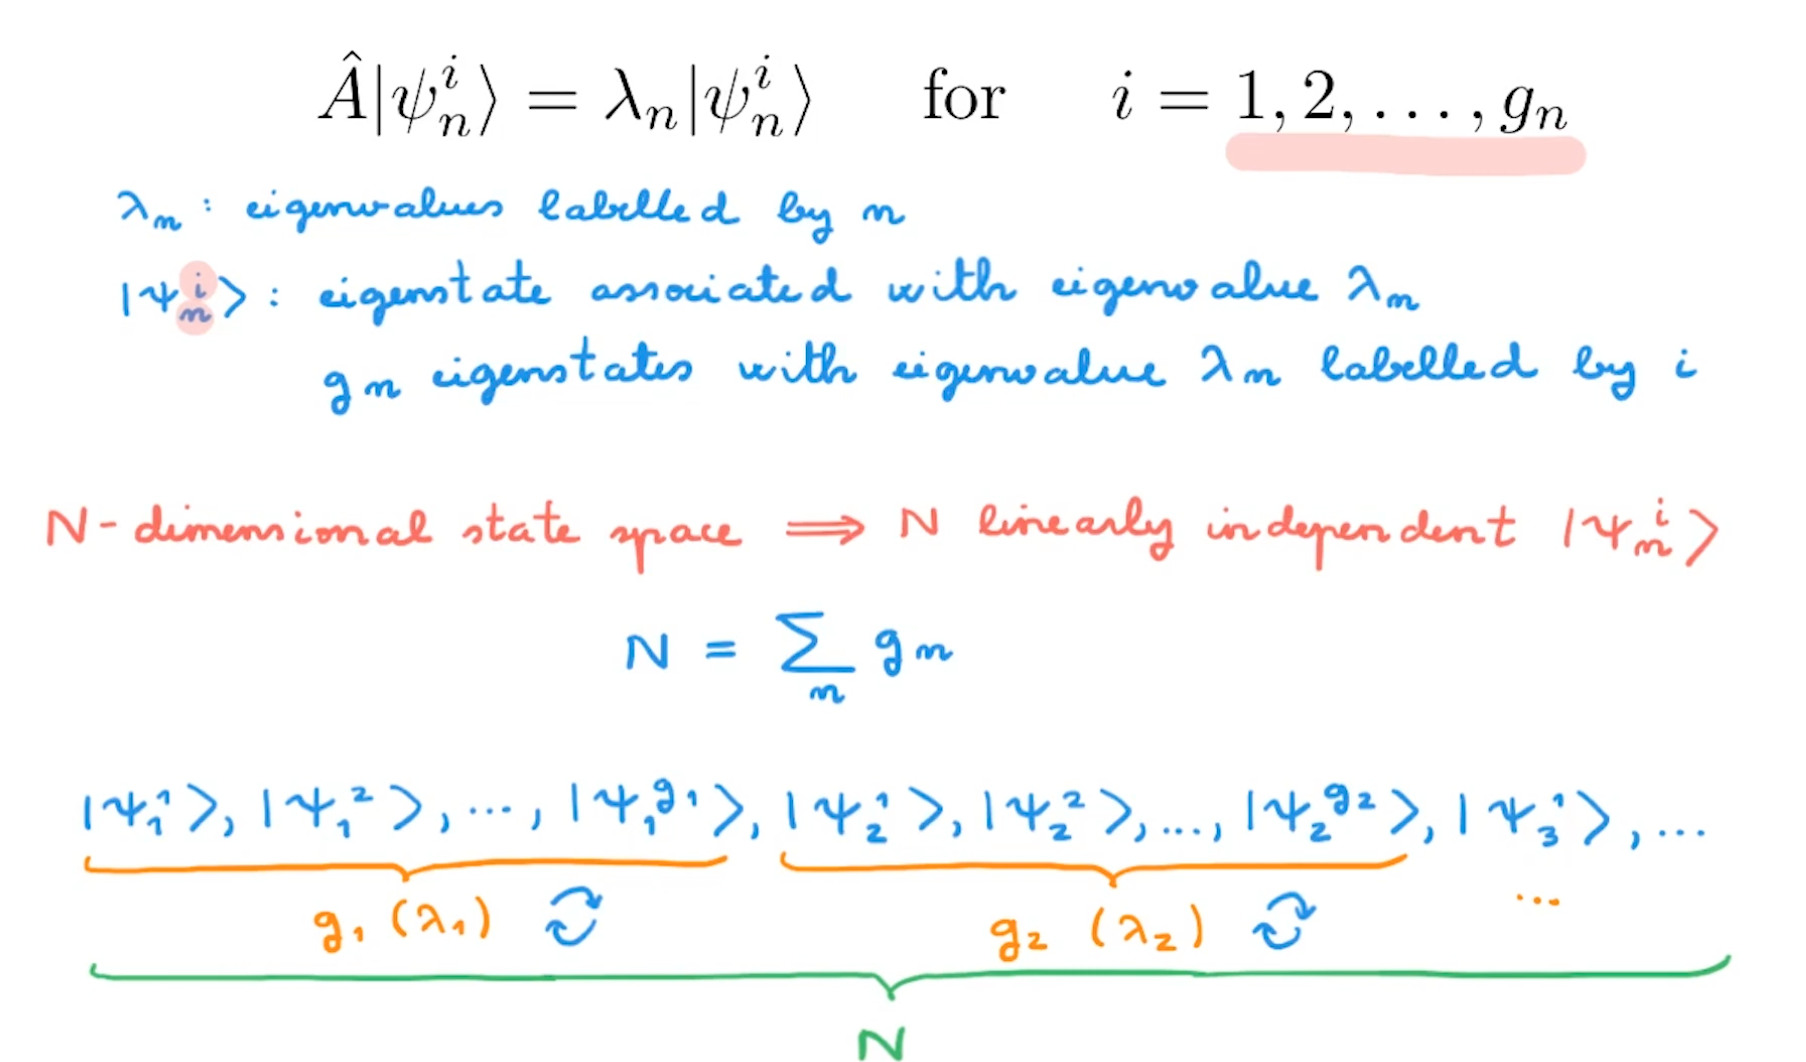 Â|ψₙⁱ⟩ = λₙ|ψₙⁱ⟩ for i = 1, 2, . . . , gₙ
λₙ : eigenvalues labelled by n
|ψₙⁱ⟩ : eigenstate associated with eigenvalue λₙ
gₙ eigenstates with eigenvalue λₙ labelled by i
N-dimensional state space ⟹ N linearly independent |ψₙⁱ⟩
N = ∑ₙ gₙ
|ψ₁¹⟩, |ψ₁²⟩, ..., |ψ₁^g₁⟩, |ψ₂¹⟩, |ψ₂²⟩, ..., |ψ₂^g₂⟩, |ψ₃¹⟩, ...
g₁ (λ₁) g₂ (λ₂) ...
N